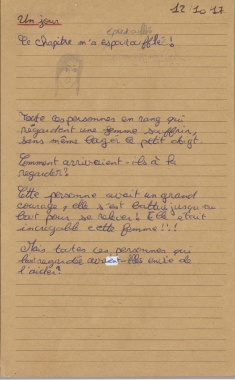 12 10 17
Un jour
Ce chapitre m'a espoutoufflé!
Toute ces personnes en rang qui
regardent une femme souffrir,
sans même bager le petit doigt.
Comment arrivaient-ils à la
regarder!
Cette personne avait un grand
courage, elle s'est battue jusqu'au
bout pour se relever! Elle était
incroyable cette femme!!!
Mais toutes ces personnes qui
la regardée avaient-elles envie de
l'aider?